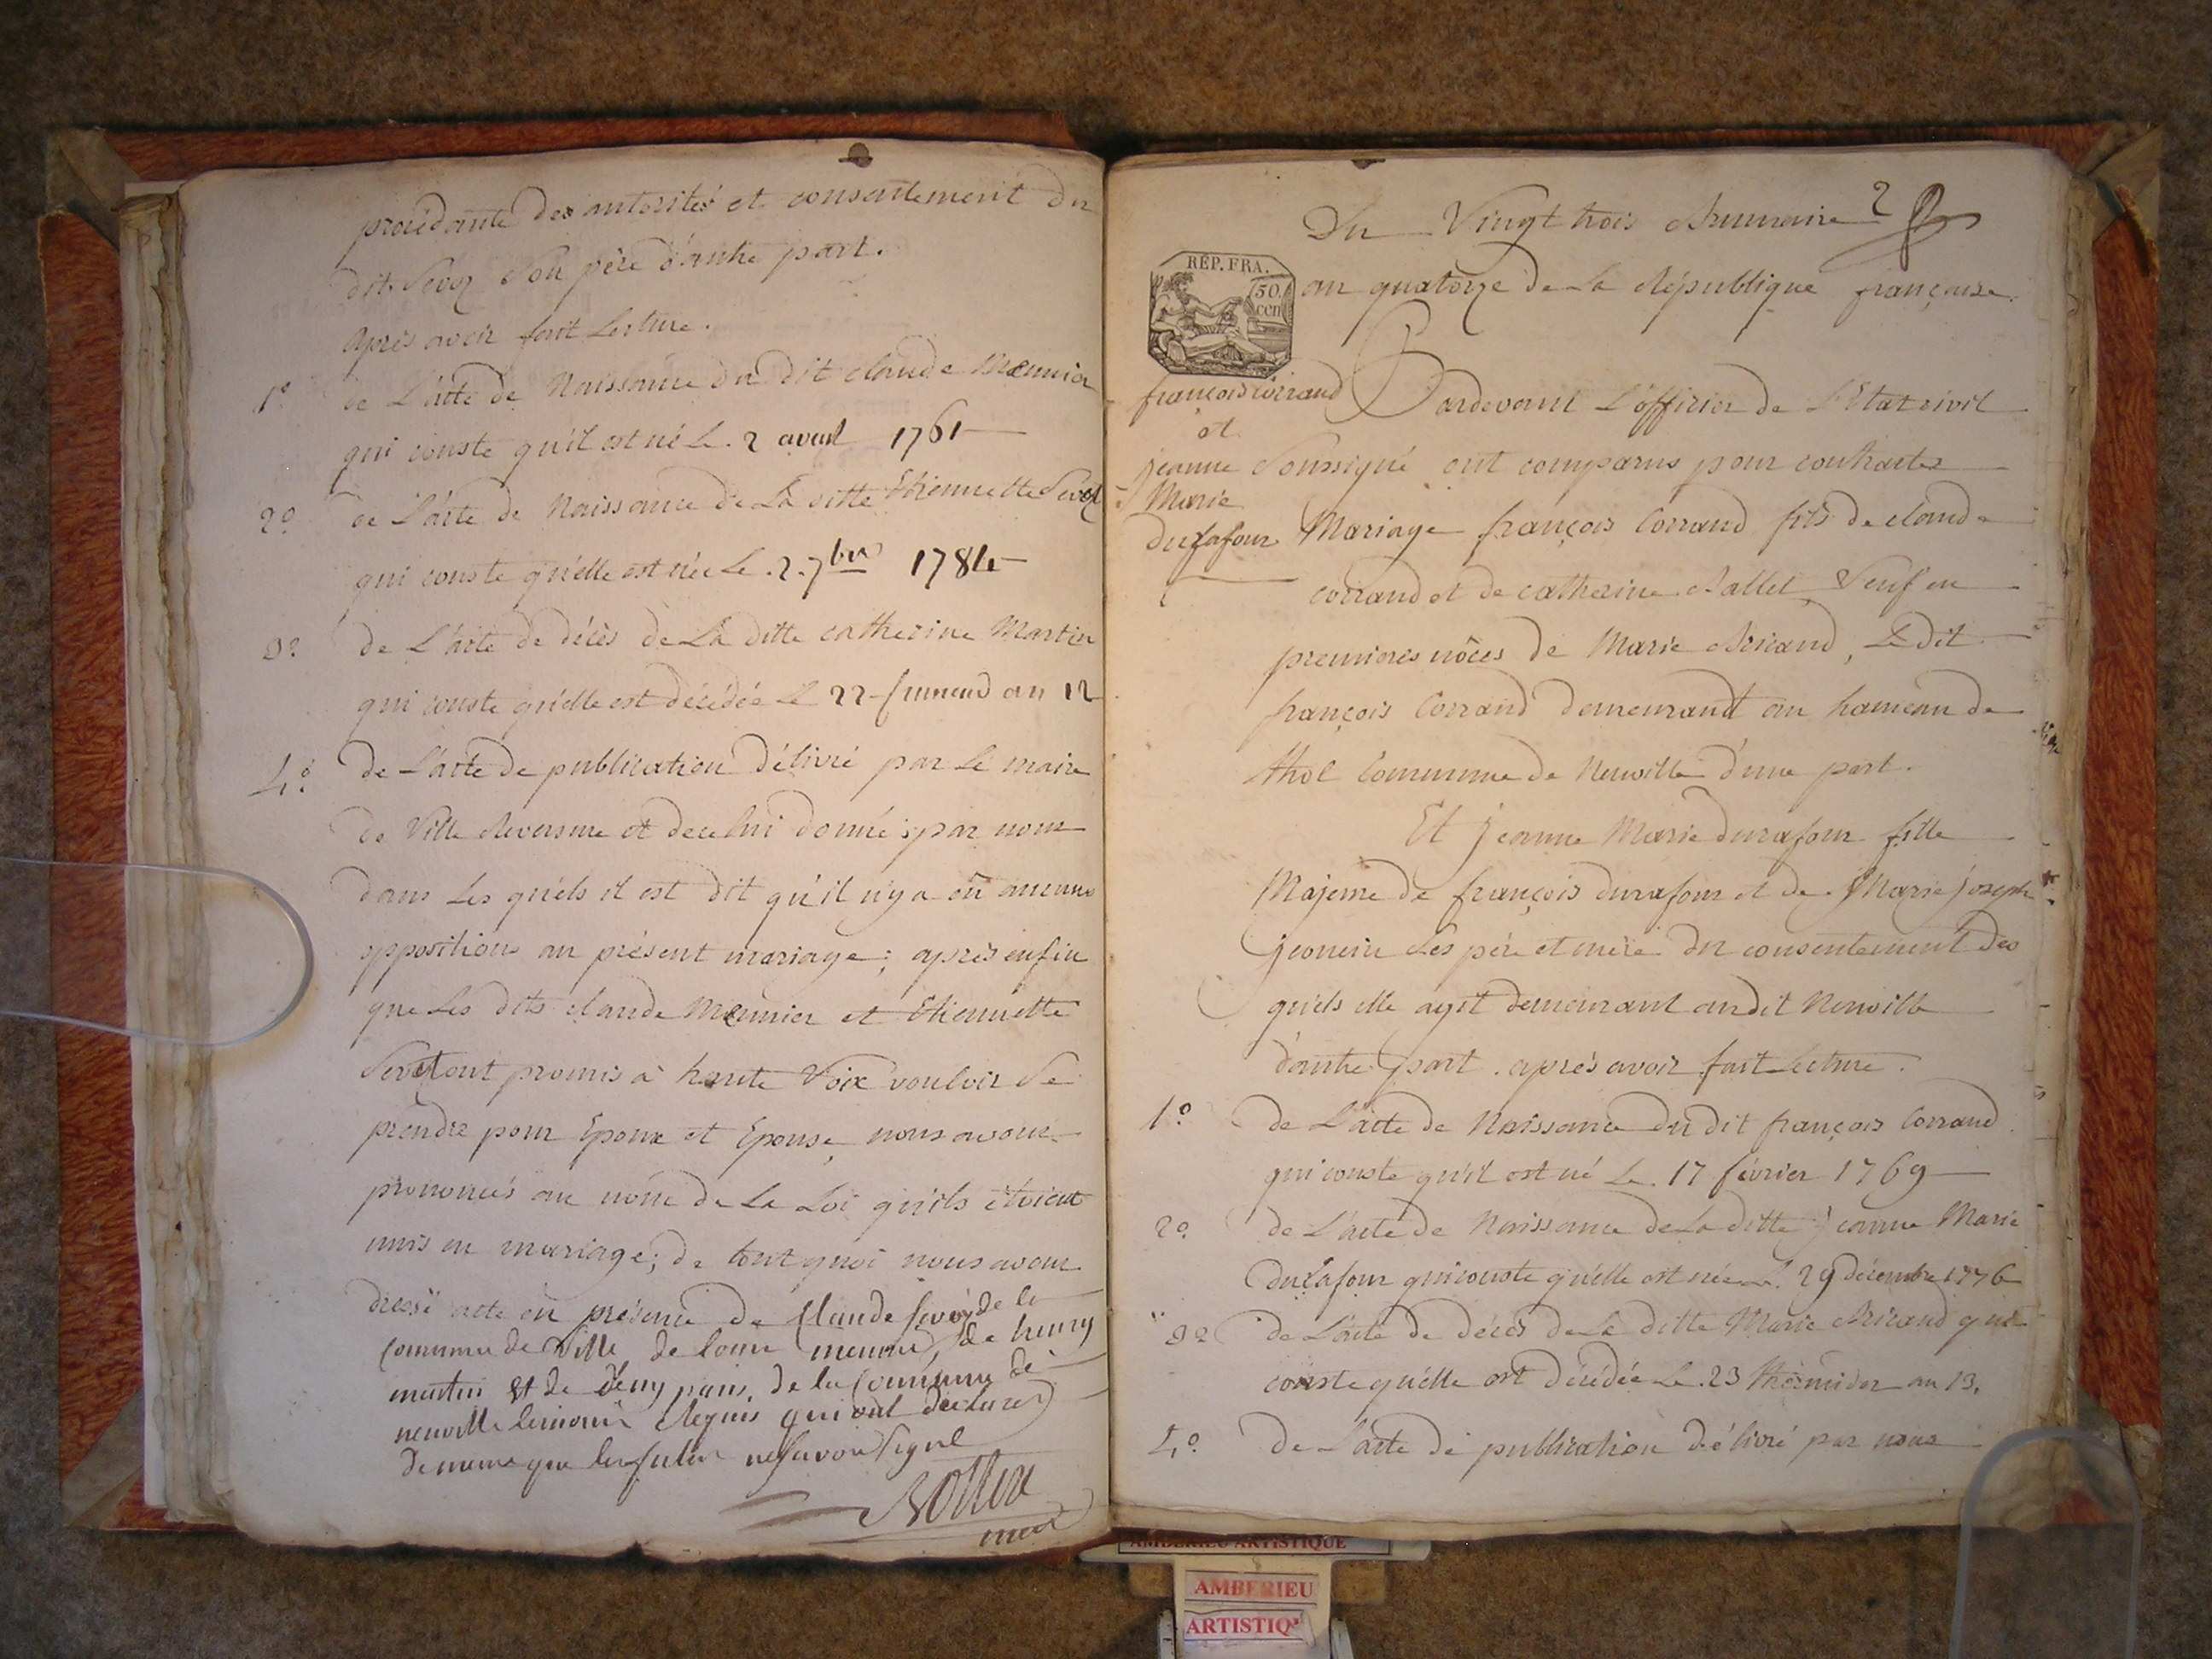 procédante des autorités et consentement du
dit Sevoz Son père d'autre part.
après avoir fait Lecture.
1º de L'acte de Naissance du dit claude Meunier
qui conste qu'il est né Le 2 avril 1761
2º de L'acte de Naissance de La ditte Etiennette Sevoz
qui conste qu'elle est née Le 2 7bre 1784
3º de L'acte de décès de La ditte catherine Martin
qui conste qu'elle est décédée Le 22 an 12
4º de L'acte de publication délivré par Le maire
de Ville Reversure et de celui donné par nous
dans Les quels il est dit qu'il n'y a eû aucune
opposition au présent mariage; après enfin
que Les dits claude Meunier et Etiennette
Sevoz ont promis à haute Voix vouloir Se
prendre pour Epoux et Epouse, nous avons
prononcés au nom de La Loi qu'ils étoient
unis en mariage; de tout quoi nous avons
dressé acte en présence de Claude Sevoz de la
Commune de Ville, de Louis meunier, de henry
martin et de deny paris, de la Commune de
neuville Requis qui ont declarer
de meme que les futur ne Savoir Signé
Bottex
mer
2
Du Vingt trois Brumaire
RÉP. FRA.
50 cen
an quatorze de La République françoise.
françois Corrand
et
jeanne
Marie
Durafour
Pardevant L'officier de L'Etat civil
Soussigné ont comparus pour contracter
Mariage françois Corrand fils de claude
corrand et de catherine Ballet, Veuf en
premieres nôces de Marie Brirand, Le dit
françois Corrand demeurant au hameau de
thol Commune de Neuville d'une part.
Et jeanne Marie durafour fille
Majeure de françois durafour et de Marie joseph
ses père et mère du consentement des
quels elle agit demeurant audit Neuville
d'autre part. après avoir fait Lecture.
1º de L'acte de Naissance du dit françois Corrand
qui conste qu'il est né Le 17 février 1769
2º de L'acte de Naissance de La ditte jeanne Marie
Durafour qui conste qu'elle est née Le 29 décembre 1776
3º de L'acte de décès de La ditte Marie Brirand qui
conste qu'elle est décédée Le 23 thermidor an 13.
4º de L'acte de publication délivré par nous
AMBERIEU ARTISTIQUE
AMBERIEU
ARTISTIQ